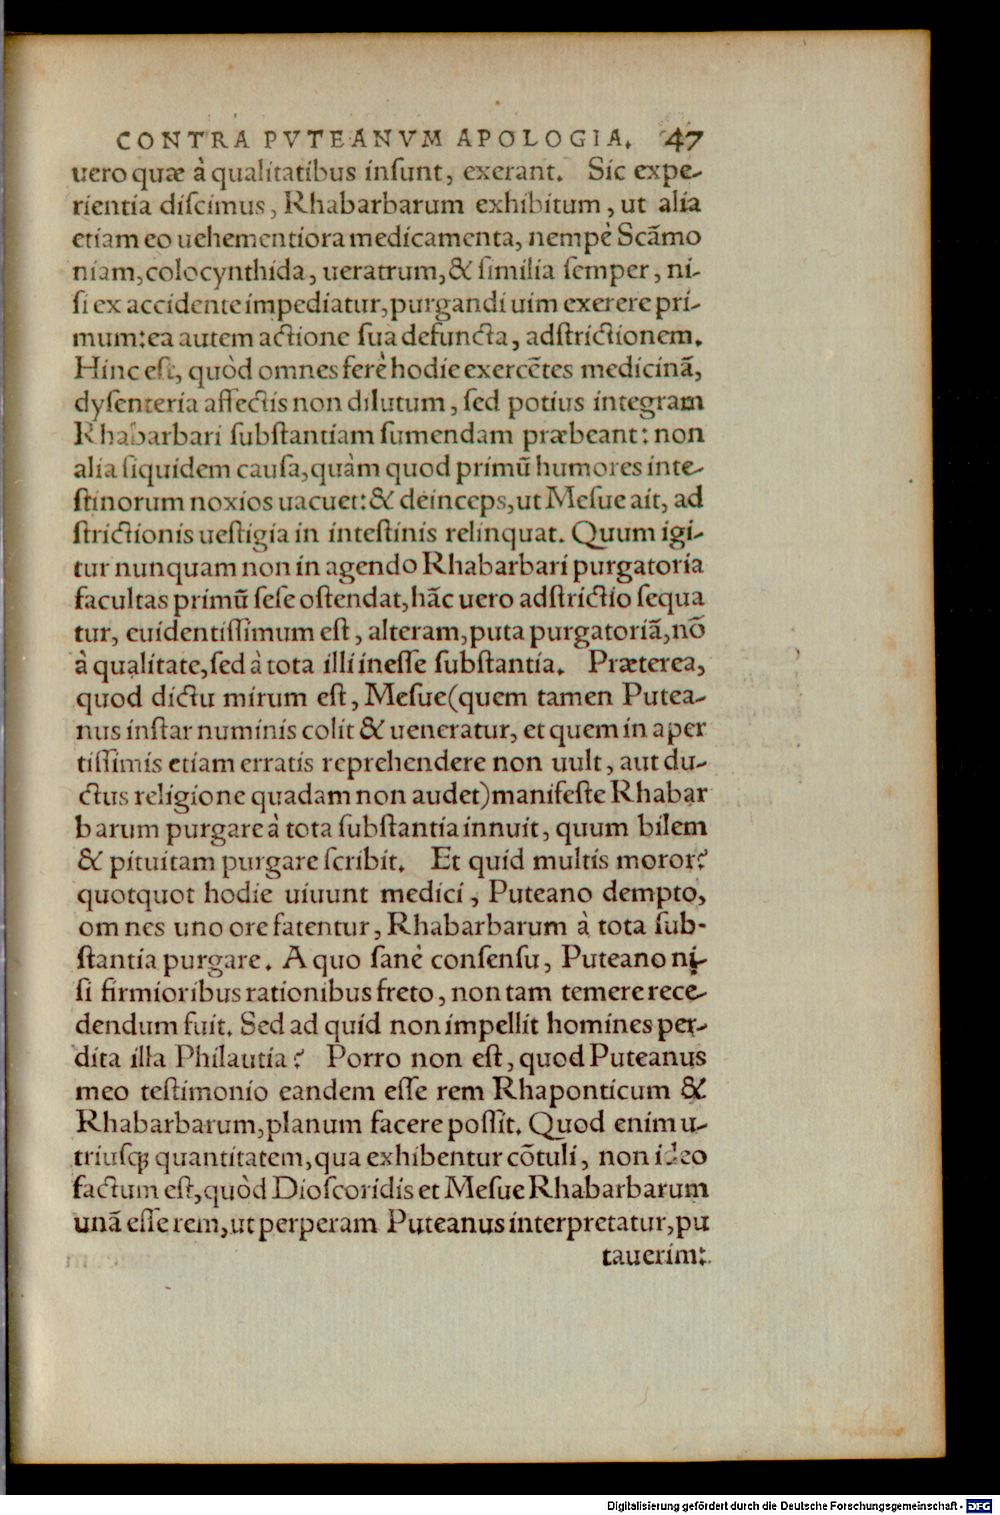 CONTRA PVTEANVM APOLOGIA. 47
uero quæ à qualitatibus inſunt, exerant. Sic expe-
rientia diſcimus, Rhabarbarum exhibitum, ut alia
etiam eo uehementiora medicamenta, nempè Scãmo
niam, colocynthida, ueratrum, & ſimilia ſemper, ni-
ſi ex accidente impediatur, purgandi uim exerere pri-
mum: ea autem actione ſua defuncta, adſtrictionem.
Hinc eſt, quòd omnes ferè hodie exercẽtes medicinã,
dyſenteria affectis non dilutum, ſed potius integram
Rhabarbari ſubſtantiam ſumendam præbeant: non
alia ſiquidem cauſa, quàm quod primũ humores inte-
ſtinorum noxios uacuet: & deinceps, ut Meſue ait, ad
ſtrictionis ueſtigia in inteſtinis relinquat. Quum igi-
tur nunquam non in agendo Rhabarbari purgatoria
facultas primũ ſeſe oſtendat, hãc uero adſtrictio ſequa
tur, euidentiſſimum eſt, alteram, puta purgatoriã, nõ
à qualitate, ſed à tota illi ineſſe ſubſtantia. Præterea,
quod dictu mirum eſt, Meſue (quem tamen Putea-
nus inſtar numinis colit & ueneratur, et quem in aper
tiſſimis etiam erratis reprehendere non uult, aut du-
ctus religione quadam non audet) manifeſte Rhabar
barum purgare à tota ſubſtantia innuit, quum bilem
& pituitam purgare ſcribit. Et quid multis moror?
quotquot hodie uiuunt medici, Puteano dempto,
omnes uno ore fatentur, Rhabarbarum à tota ſub-
ſtantia purgare. A quo ſanè conſenſu, Puteano ni-
ſi firmioribus rationibus freto, non tam temere rece-
dendum fuit. Sed ad quid non impellit homines per-
dita illa Philautia? Porro non eſt, quod Puteanus
meo teſtimonio eandem eſſe rem Rhaponticum &
Rhabarbarum, planum facere poſſit. Quod enim u-
triuſꝗ quantitatem, qua exhibentur cõtuli, non ideo
factum eſt, quòd Dioſcoridis et Meſue Rhabarbarum
unã eſſe rem, ut perperam Puteanus interpretatur, pu
tauerim:
Digitalisierung gefördert durch die Deutsche Forschungsgemeinschaft - DFG